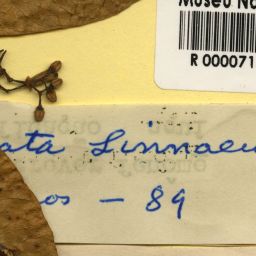 Museu Na
R 000071
ata Linnaeu
os – 89